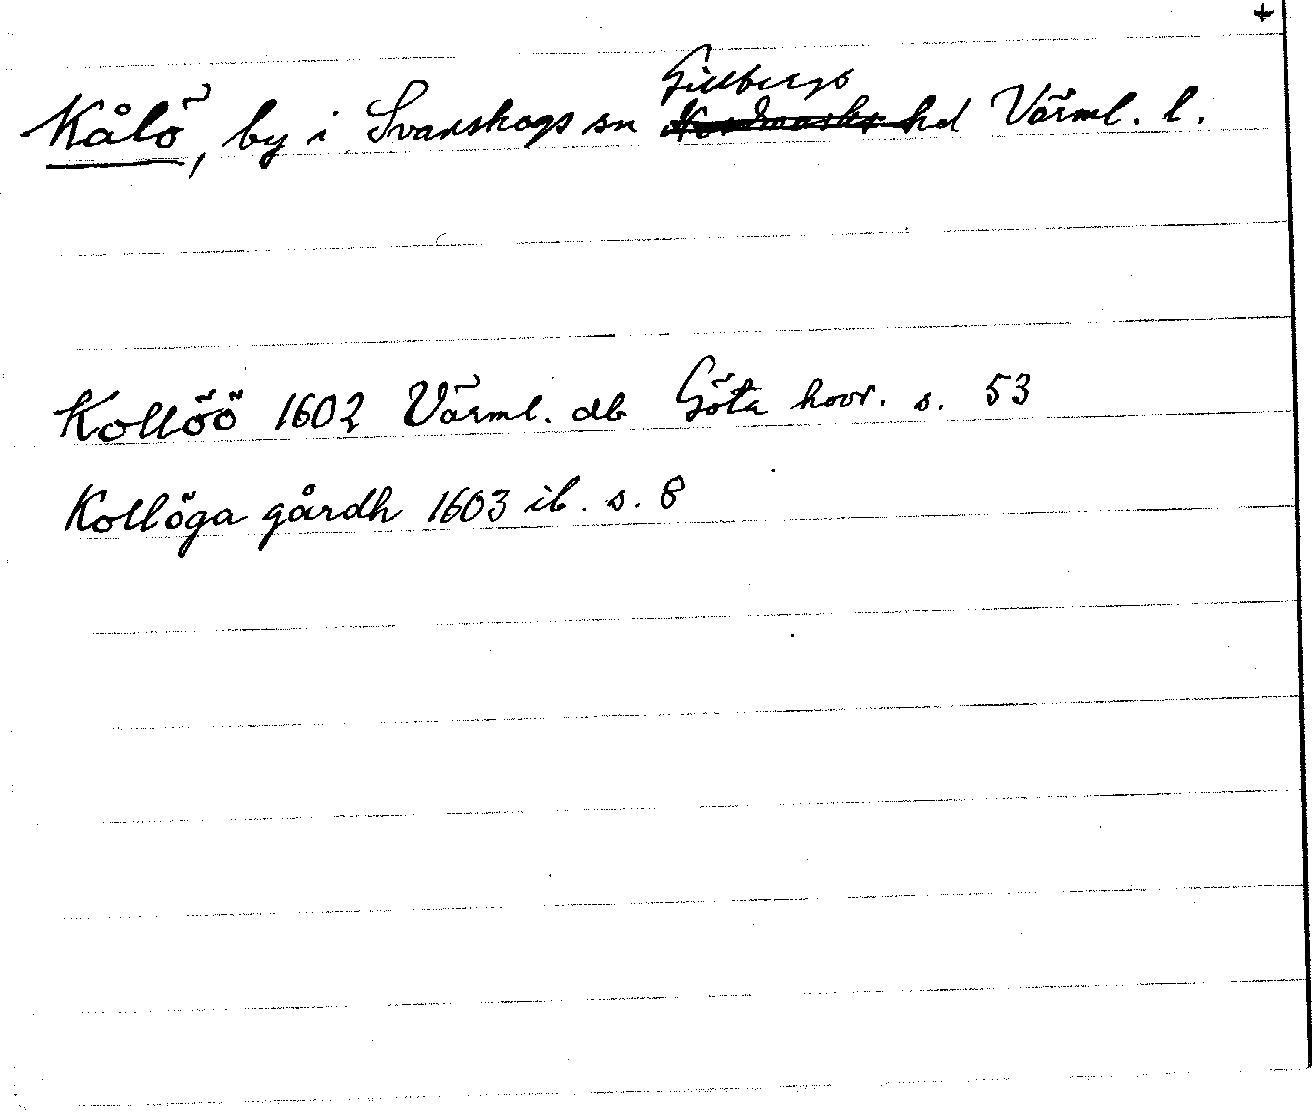 +
Gillbergs
Kålö, by i Svanskogs sn Nordmarks hd Värml. l.
Kollöö 1602 Värml. db Göta hovr. s. 53
Kollöga gårdh 1603 ib. s. 8